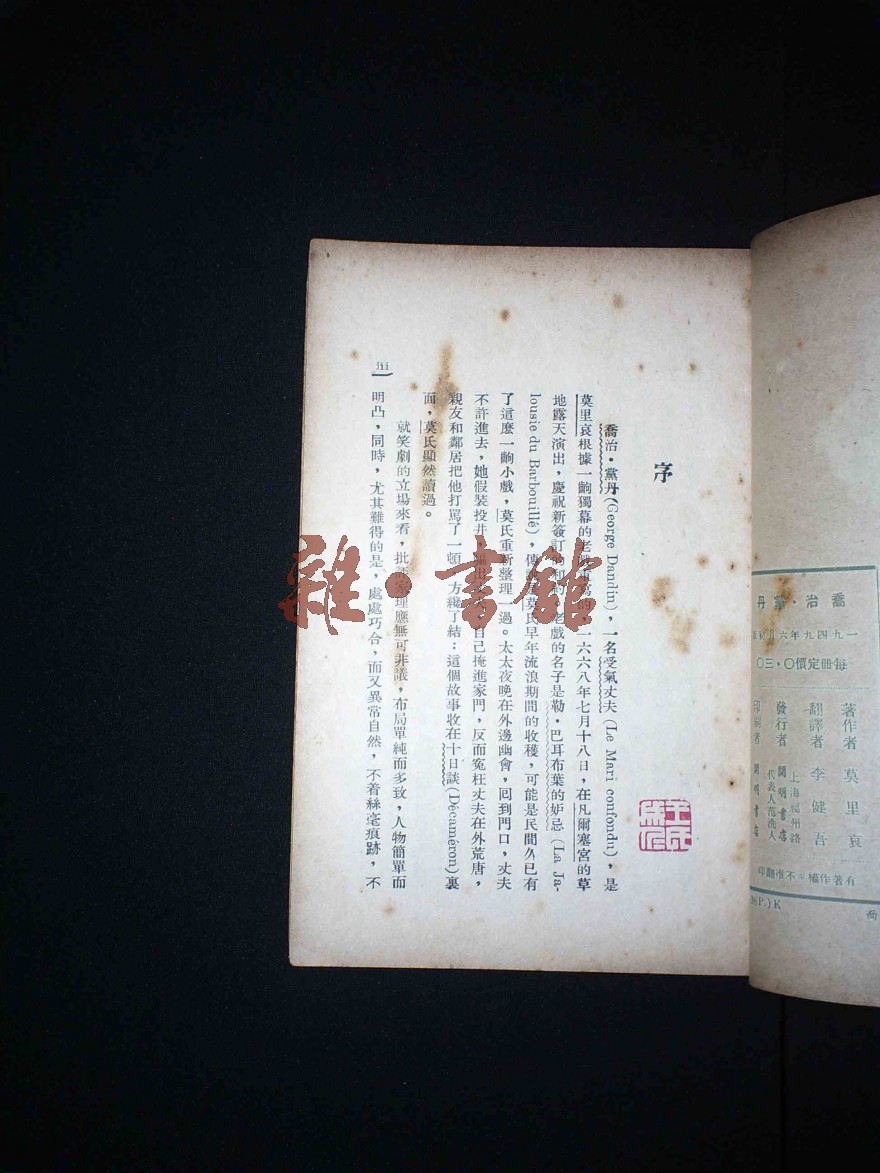 喬治・黨丹
一九四九年六月
每冊定價〇・三〇
著作者 莫里哀
翻譯者 李健吾
發行者 開明書店
上海福州路
代表人范洗人
印刷者 開明書店
有著作權＊不准翻印
P.)K
喬
序
喬治・黨丹(George Dandin)，一名受氣丈夫(Le Mari confondu)，是
莫里哀根據一齣獨幕的老 一六六八年七月十八日，在凡爾塞宮的草
地露天演出，慶祝新簽訂的和約。老戲的名子是勒・巴耳布葉的妒忌(La Ja-
lousie du Barbouillé)，傳說是莫氏早年流浪期間的收穫，可能是民間久已有
了這麼一齣小戲，莫氏重新整理一過。太太夜晚在外邊幽會，囘到門口，丈夫
不許進去，她假裝投井，騙出丈夫，自己掩進家門，反而冤枉丈夫在外荒唐，
親友和鄰居把他打罵了一頓，方纔了結：這個故事收在十日談(Décaméron)裏
面，莫氏顯然讀過。
就笑劇的立場來看，批評家理應無可非議，布局單純而多致，人物簡單而
明凸，同時，尤其難得的是，處處巧合，而又異常自然，不着絲毫痕跡，不
iii
雜・書館